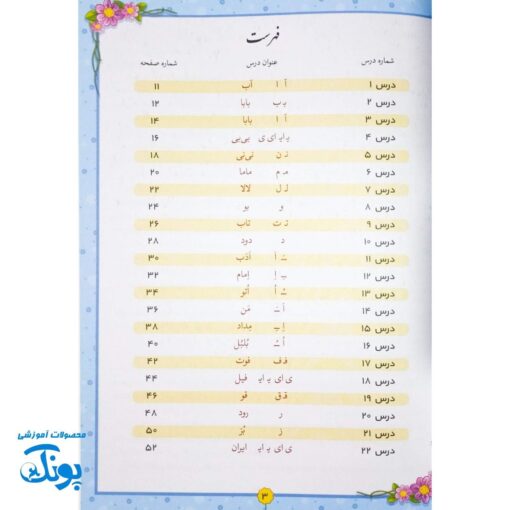 فهرست
شماره درس عنوان درس شماره صفحه
درس ۱ آ ا آب ۱۱
درس ۲ بـ ب بابا ۱۲
درس ۳ آ ا بابا ۱۴
درس ۴ یـ ـیـ ی ای بی‌بی ۱۶
درس ۵ نـ ن نی‌نی ۱۸
درس ۶ مـ م ماما ۲۰
درس ۷ لـ ل لالا ۲۲
درس ۸ و بو ۲۴
درس ۹ تـ ت تاب ۲۶
درس ۱۰ د دود ۲۸
درس ۱۱ ـَ اَ اَدَب ۳۰
درس ۱۲ ـِ اِ اِمام ۳۲
درس ۱۳ ـُ اُ اُتو ۳۴
درس ۱۴ اَ ـَ مَن ۳۶
درس ۱۵ اِ ـِ مِداد ۳۸
درس ۱۶ اُ ـُ بُلبُل ۴۰
درس ۱۷ فـ ف فوت ۴۲
درس ۱۸ ی ای یـ ایـ فیل ۴۴
درس ۱۹ قـ ق قو ۴۶
درس ۲۰ ر رود ۴۸
درس ۲۱ ز بُز ۵۰
درس ۲۲ ی ای یـ ایـ ایران ۵۲
۳
محصولات آموزشی
پونک